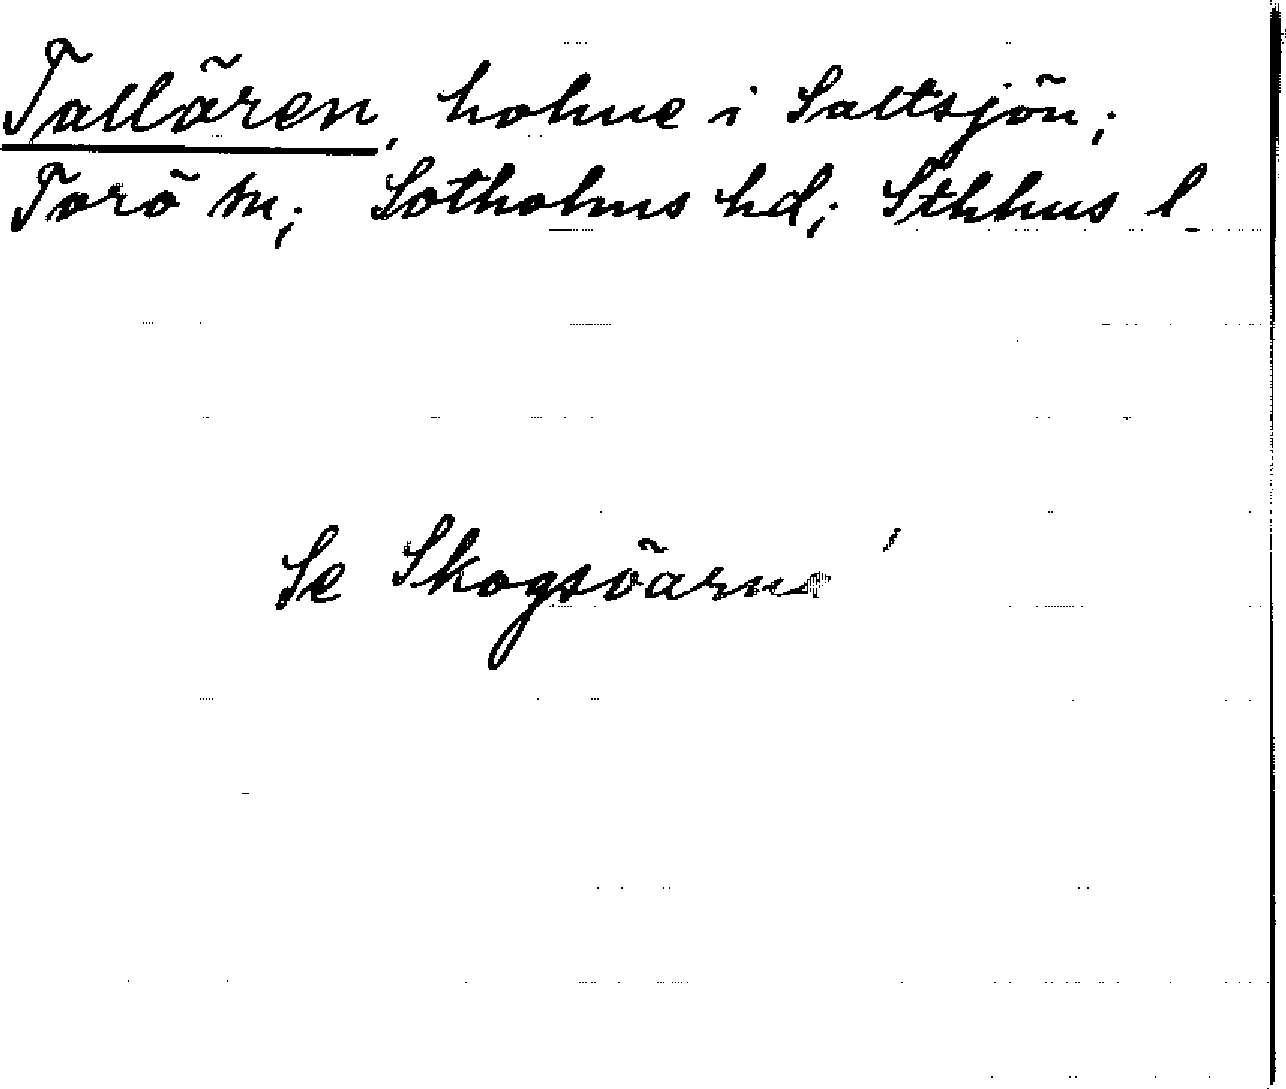 Tallören, holme i Saltsjön;
Torö sn; Sotholms hd; Sthlms l.
Se Skogsöarna